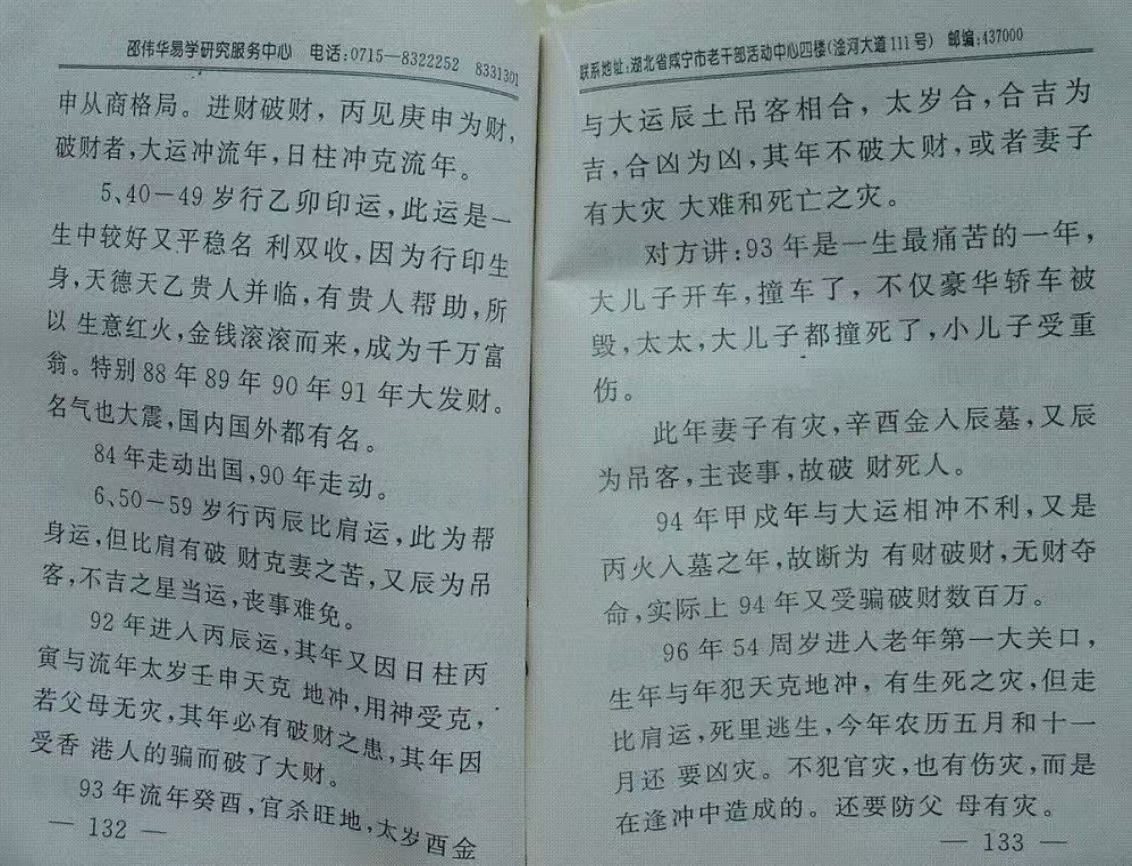 邵伟华易学研究服务中心 电话:0715—8322252 8331301
申从商格局。进财破财，丙见庚申为财，
破财者，大运冲流年，日柱冲克流年。
5、40－49 岁行乙卯印运，此运是一
生中较好又平稳名 利双收，因为行印生
身，天德天乙贵人并临，有贵人帮助，所
以 生意红火，金钱滚滚而来，成为千万富
翁。特别88年89年90年91年大发财。
名气也大震，国内国外都有名。
84年走动出国，90年走动。
6、50－59 岁行丙辰比肩运，此为帮
身运，但比肩有破 财克妻之苦，又辰为吊
客，不吉之星当运，丧事难免。
92年进入丙辰运，其年又因日柱丙
寅与流年太岁壬申天克 地冲，用神受克，
若父母无灾，其年必有破财之患，其年因
受香 港人的骗而破了大财。
93年流年癸酉，官杀旺地，太岁酉金
— 132 —
联系地址:湖北省咸宁市老干部活动中心四楼(淦河大道111号) 邮编:437000
与大运辰土吊客相合，太岁合，合吉为
吉，合凶为凶，其年不破大财，或者妻子
有大灾 大难和死亡之灾。
对方讲:93年是一生最痛苦的一年，
大儿子开车，撞车了，不仅豪华轿车被
毁，太太，大儿子都撞死了，小儿子受重
伤。
此年妻子有灾，辛酉金入辰墓，又辰
为吊客，主丧事，故破 财死人。
94年甲戌年与大运相冲不利，又是
丙火入墓之年，故断为 有财破财，无财夺
命，实际上94年又受骗破财数百万。
96年54周岁进入老年第一大关口，
生年与年犯天克地冲，有生死之灾，但走
比肩运，死里逃生，今年农历五月和十一
月还 要凶灾。不犯官灾，也有伤灾，而是
在逢冲中造成的。还要防父 母有灾。
— 133 —